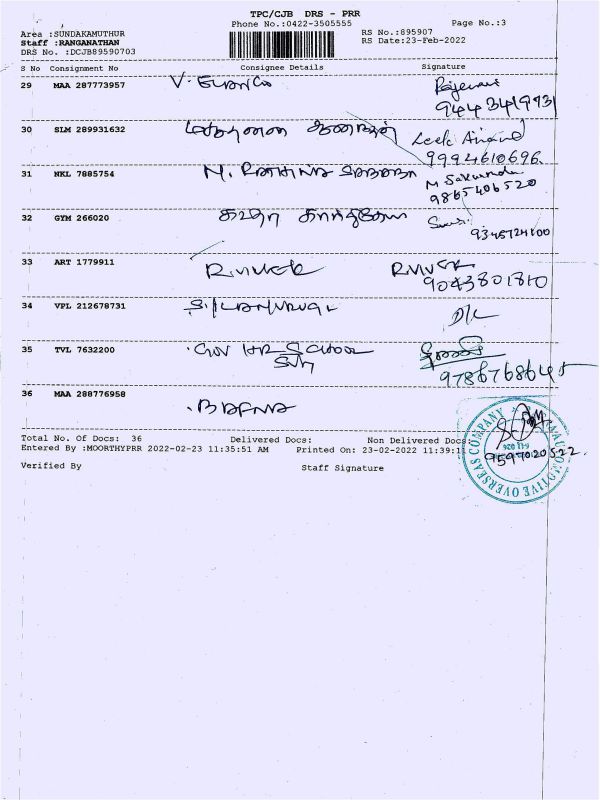 TPC/CJB DRS - PRR
Phone No.:0422-3505555 Page No.:3
Area :SUNDAKAMUTHUR RS No.:895907
Staff :RANGANATHAN RS Date:23-Feb-2022
DRS No. :DCJB89590703
S No Consignment No Consignee Details Signature
29 MAA 287773957 V. ELANGO
30 SLM 289931632
9994610696
31 NKL 7885754 M.
9865406520
32 GYM 266020
9345724100
33 ART 1779911 R.VIVEK R.VIVEK
9043801810
34 VPL 212678731 D/L
35 TVL 7632200 GOV HR SCHOOL
9786768645
36 MAA 288776958 BAFNA
Total No. Of Docs: 36 Delivered Docs: Non Delivered Docs
Entered By :MOORTHYPRR 2022-02-23 11:35:51 AM Printed On: 23-02-2022 11:39:11
9597020522
Verified By Staff Signature
AUTOMOTIVE OVERSEAS COMPANY